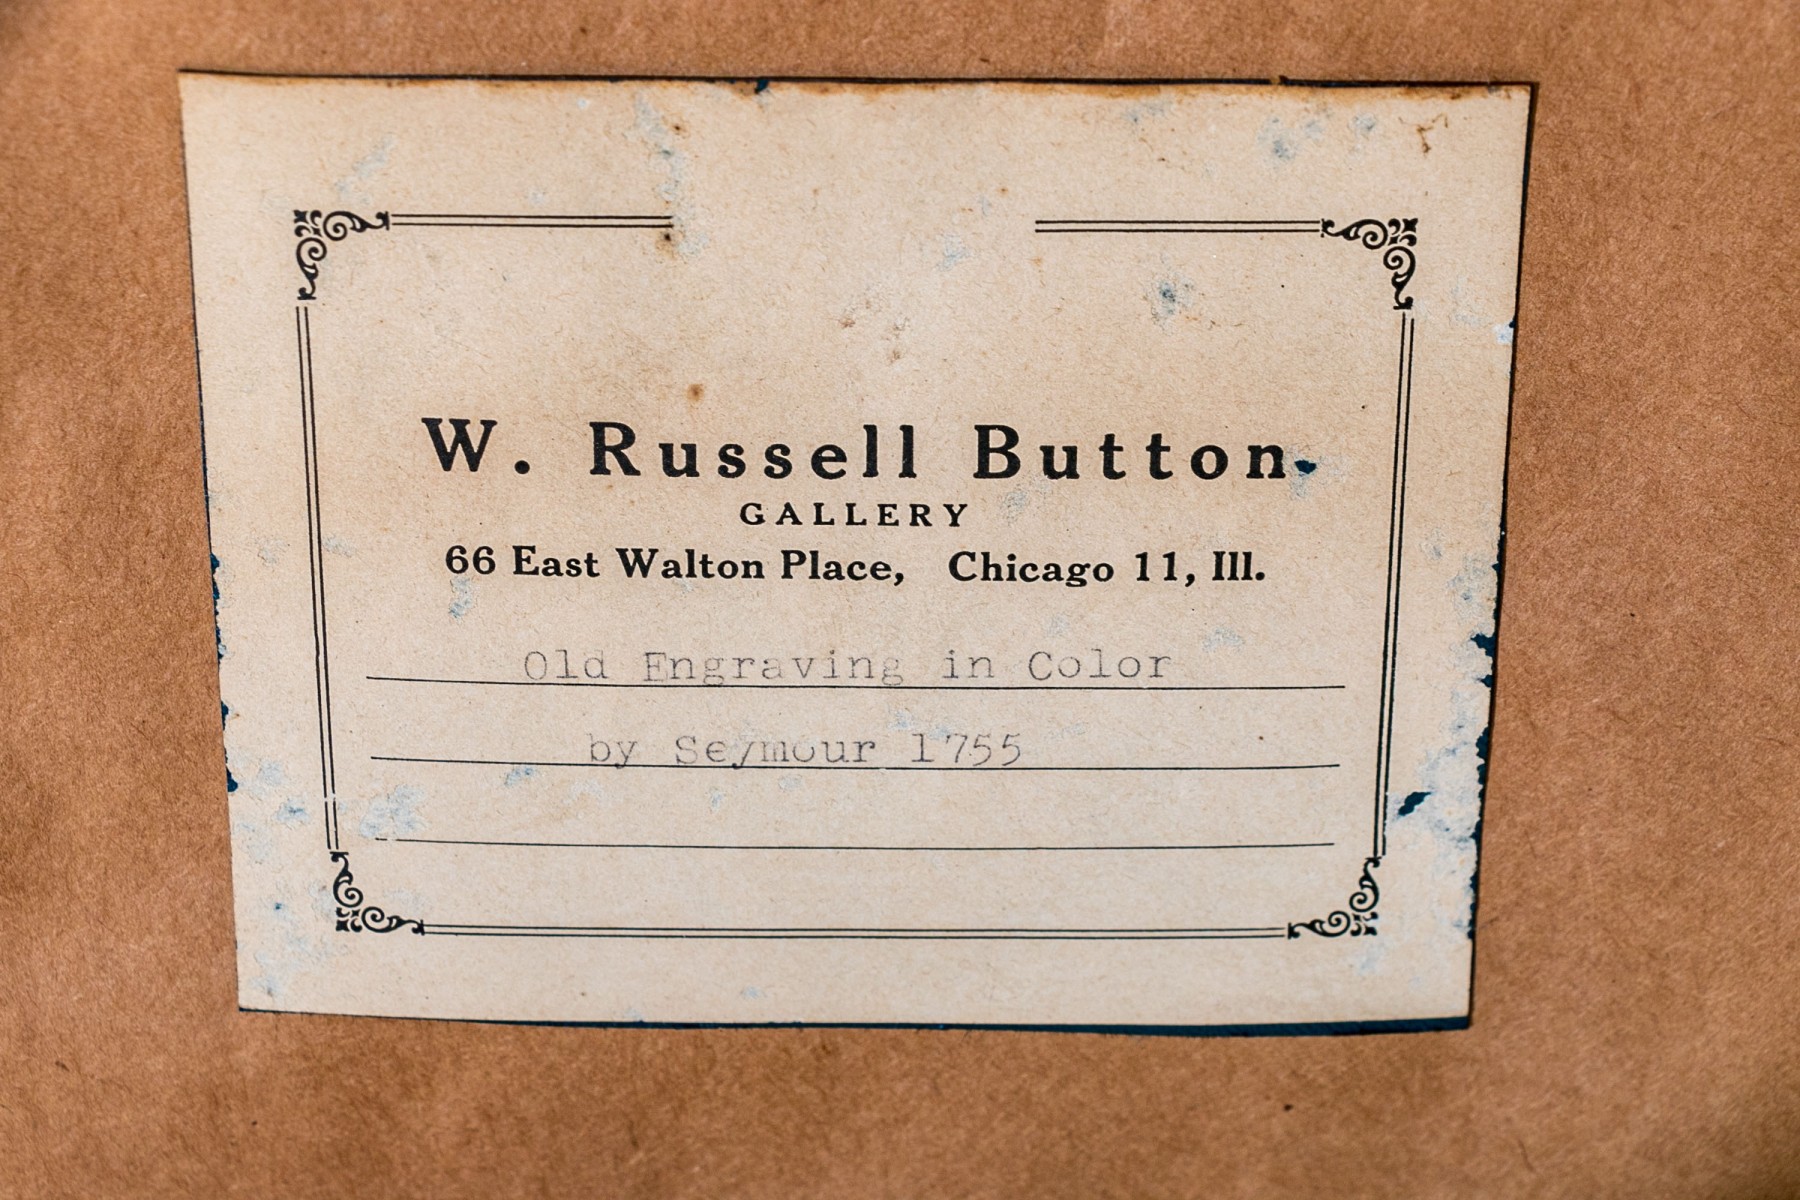 W. Russell Button
GALLERY
66 East Walton Place, Chicago 11, Ill.
Old Engraving in Color
by Seymour 1755